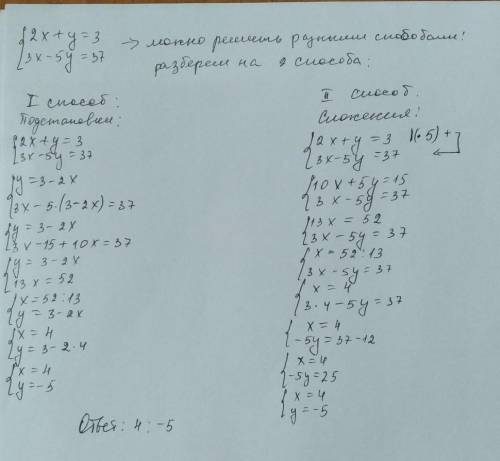 {2x + y = 3
{3x - 5y = 37 → можно решить разными способами!
разберем на 2 способа:
I способ:
Подстановки:
{2x + y = 3
{3x - 5y = 37
{y = 3 - 2x
{3x - 5·(3 - 2x) = 37
{y = 3 - 2x
{3x - 15 + 10x = 37
{y = 3 - 2x
{13x = 52
{x = 52 : 13
{y = 3 - 2x
{x = 4
{y = 3 - 2·4
{x = 4
{y = -5
II способ.
Сложения!
{2x + y = 3 |(·5) +
{3x - 5y = 37
{10x + 5y = 15
{3x - 5y = 37
{13x = 52
{3x - 5y = 37
{x = 52 : 13
{3x - 5y = 37
{x = 4
{3·4 - 5y = 37
{x = 4
{-5y = 37 - 12
{x = 4
{-5y = 25
{x = 4
{y = -5
Ответ: 4 ; -5